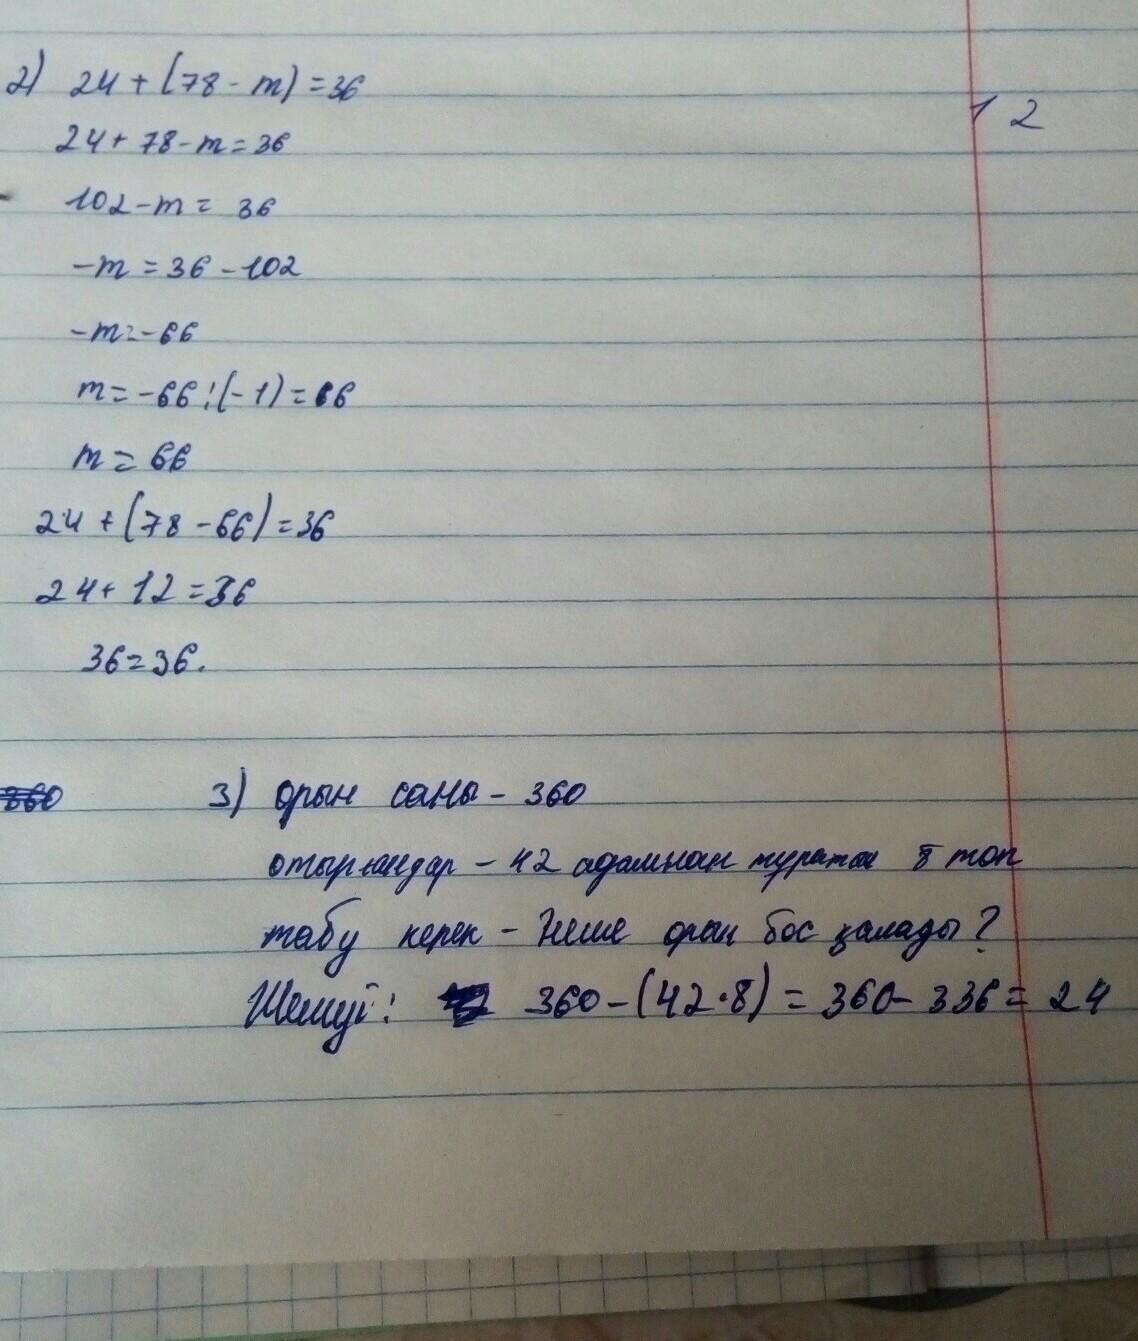 2) 24 + (78 - m) = 36
1 2
24 + 78 - m = 36
102 - m = 36
-m = 36 - 102
-m = -66
m = -66 : (-1) = 66
m = 66
24 + (78 - 66) = 36
24 + 12 = 36
36 = 36.
360 3) орын саны - 360
отырғандар - 42 адамнан тұратын 8 топ
табу керек - Неше орын бос қалады?
Шешуі: 360 - (42 · 8) = 360 - 336 = 24